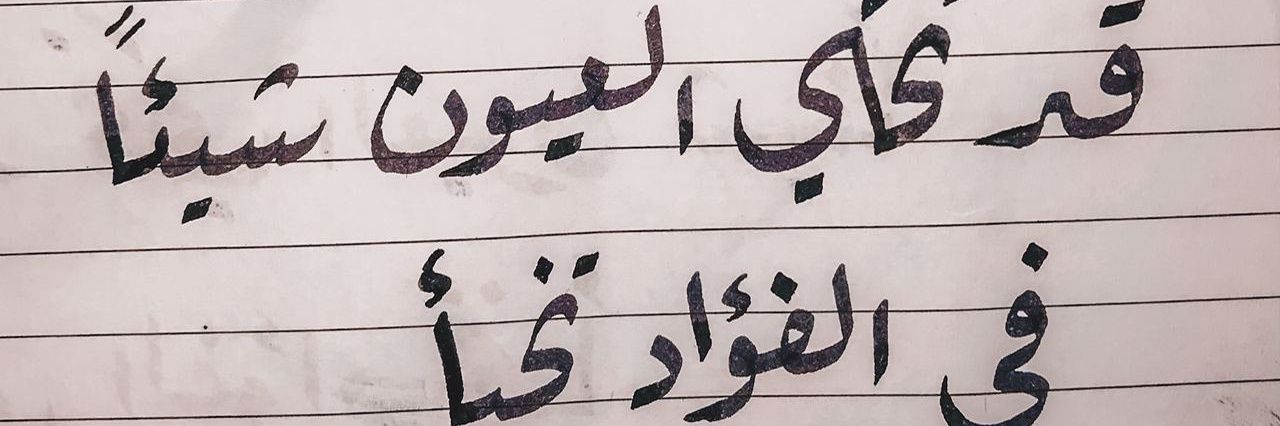 قد تحكي العيون شيئًا
في الفؤاد تخبأ